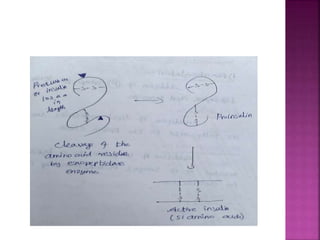 Precursor
or insulin
a.a
in
length
-S-S-
-S-S-
Proinsulin
Cleavage of the
amino acid residues
by endopeptidase
enzyme.
Active insulin
(51 amino acids)